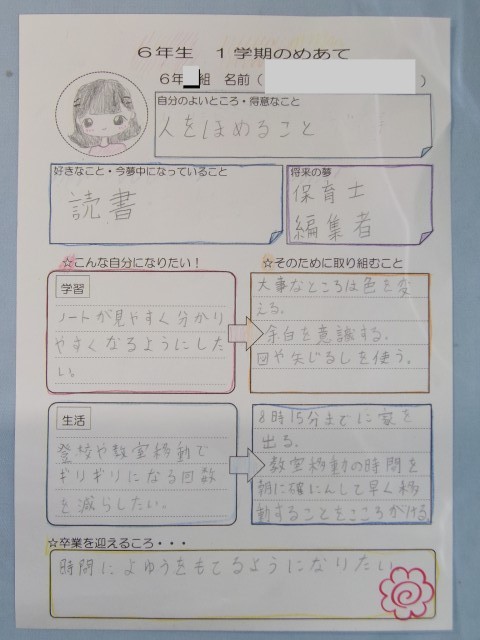 6年生 1学期のめあて
6年 組 名前( )
自分のよいところ・得意なこと
人をほめること
好きなこと・今夢中になっていること
読書
将来の夢
保育士
編集者
☆こんな自分になりたい!
☆そのために取り組むこと
学習
ノートが見やすく分かり
やすくなるようにした
い。
大事なところは色を変
える。
余白を意識する。
図や矢じるしを使う。
生活
登校や教室移動で
ギリギリになる回数
を減らしたい。
8時15分までに家を
出る。
教室移動の時間を
朝に確にんして早く移
動することをこころがける。
☆卒業を迎えるころ・・・
時間によゆうをもてるようになりたい